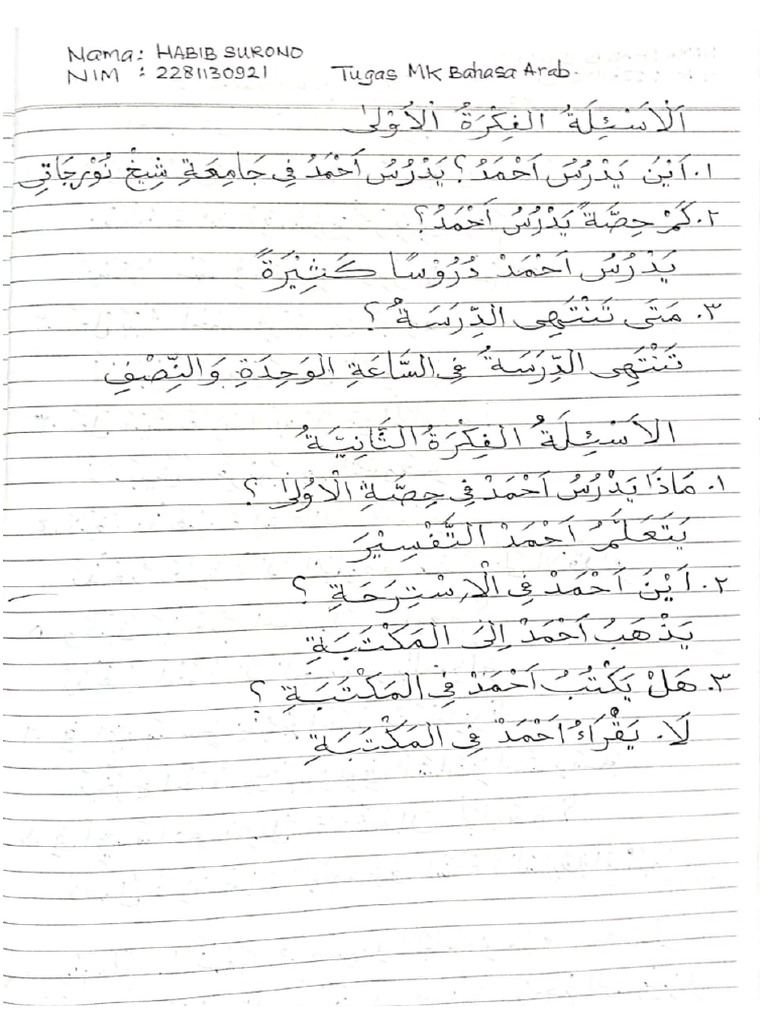 Nama: HABIB SURONO
NIM : 2281130921 Tugas MK Bahasa Arab.
اَلْاَسْئِلَةُ الفِكْرَةُ الْاُوْلٰى
١. اَيْنَ يَدْرُسُ اَحْمَدُ؟ يَدْرُسُ اَحْمَدُ فِى جَامِعَةِ شَيْخْ نُوْرجَاتِى
٢. كَمْ حِصَّةً يَدْرُسُ اَحْمَدُ؟
يَدْرُسُ اَحْمَدْ دُرُوْسًا كَثِيْرَةً
٣. مَتَى تَنْتَهِى الدِّرَسَةُ ؟
تَنْتَهِى الدِّرَسَةُ فِى السَّاعَةِ الوَحِدَةِ وَالنِّصْفِ
الاَسْئِلَةُ الفِكْرَةُ الثَّانِيَةُ
١. مَاذَا يَدْرُسُ اَحْمَدْ فِى حِصَّةِ الْاُوْلٰى ؟
يَتَعَلَّمُ اَحْمَدْ التَّفْسِيْرَ
٢. اَيْنَ اَحْمَدْ فِى الْاِسْتِرَحَةِ ؟
يَذْهَبُ اَحْمَدْ اِلَى المَكْتَبَةِ
٣. هَلْ يَكْتُبُ اَحْمَدْ فِى المَكْتَبَةِ ؟
لَا. يَقْرَاءُ اَحْمَدْ فِى المَكْتَبَةِ